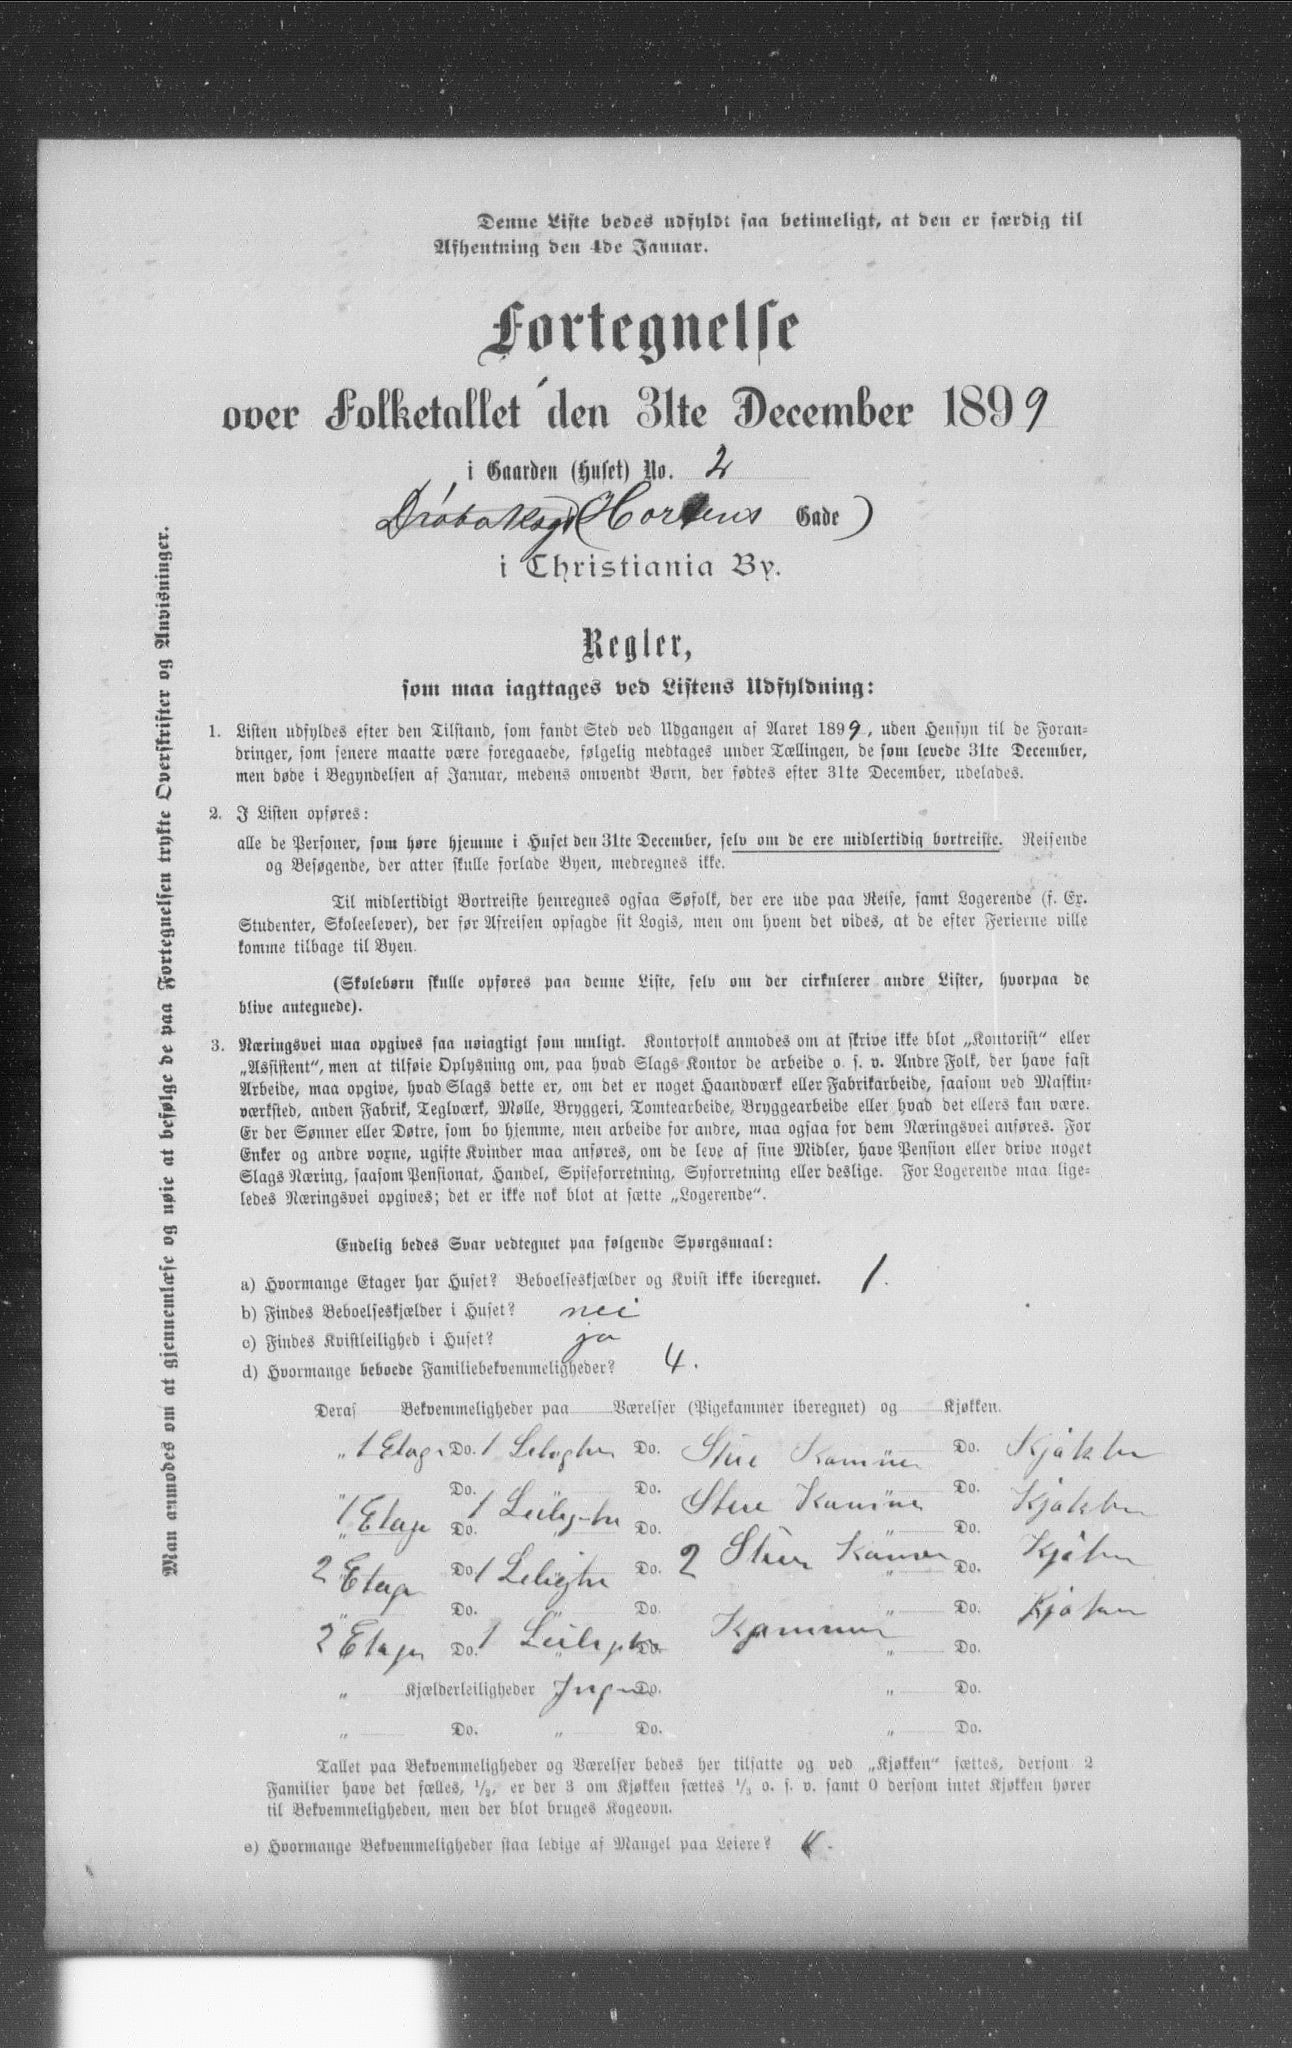 Denne Liste bedes udfyldt saa betimeligt, at den er færdig til
Afhentning den 4de Januar.
Fortegnelse
over Folketallet den 31te December 1899
i Gaarden (Huset) No. 2
Drøbaksgd (Hortens Gade)
i Christiania By.
Regler,
som maa iagttages ved Listens Udfyldning:
1. Listen udfyldes efter den Tilstand, som fandt Sted ved Udgangen af Aaret 1899, uden Hensyn til de Foran-
dringer, som senere maatte være foregaaede, følgelig medtages under Tællingen, de som levede 31te December,
men døde i Begyndelsen af Januar, medens omvendt Børn, der fødtes efter 31te December, udelades.
2. I Listen opføres:
alle de Personer, som høre hjemme i Huset den 31te December, selv om de ere midlertidig bortreiste. Reisende
og Besøgende, der atter skulle forlade Byen, medregnes ikke.
Til midlertidigt Bortreiste henregnes ogsaa Søfolk, der ere ude paa Reise, samt Logerende (f. Ex.
Studenter, Skoleelever), der før Afreisen opsagde sit Logis, men om hvem det vides, at de efter Ferierne ville
komme tilbage til Byen.
(Skolebørn skulle opføres paa denne Liste, selv om der cirkulerer andre Lister, hvorpaa de
blive antegnede).
3. Næringsvei maa opgives saa nøiagtigt som muligt. Kontorfolk anmodes om at skrive ikke blot „Kontorist“ eller
„Assistent“, men at tilføie Oplysning om, paa hvad Slags Kontor de arbeide o. s. v. Andre Folk, der have fast
Arbeide, maa opgive, hvad Slags dette er, om det er noget Haandværk eller Fabrikarbeide, saasom ved Maskin-
værksted, anden Fabrik, Teglværk, Mølle, Bryggeri, Tomtearbeide, Bryggearbeide eller hvad det ellers kan være.
Er der Sønner eller Døtre, som bo hjemme, men arbeide for andre, maa ogsaa for dem Næringsvei anføres. For
Enker og andre voxne, ugifte Kvinder maa anføres, om de leve af sine Midler, have Pension eller drive noget
Slags Næring, saasom Pensionat, Handel, Spiseforretning, Syforretning eller deslige. For Logerende maa lige-
ledes Næringsvei opgives; det er ikke nok blot at sætte „Logerende“.
Endelig bedes Svar vedtegnet paa følgende Spørgsmaal:
a) Hvormange Etager har Huset? Beboelseskjælder og Kvist ikke iberegnet. 1.
b) Findes Beboelseskjælder i Huset? nei
c) Findes Kvistleilighed i Huset? ja
d) Hvormange beboede Familiebekvemmeligheder? 4.
Deraf Bekvemmeligheder paa Værelser (Pigekammer iberegnet) og Kjøkken.
„ 1 Etage Do. 1 Do. „ Do.
„ Do. Do. „ Do.
1 Etage Do. 1 „ Do. „ Do.
2 Etage Do. 1 Do. 2 „ Do.
„ Do. „ Do. „ Do.
2 Etage Do. 1 „ Do. „ Do.
„ Kjælderleiligheder Do. „ Do.
„ Do. „ Do. „ Do.
Tallet paa Bekvemmeligheder og Værelser bedes her tilsatte og ved „Kjøkken“ sættes, dersom 2
Familier have det fælles, 1/2, er der 3 om Kjøkken sættes 1/3 o. s. v. samt 0 dersom intet Kjøkken hører
til Bekvemmeligheden, men der blot bruges Kogeovn.
e) Hvormange Bekvemmeligheder staa ledige af Mangel paa Leiere?
Man anmodes om at gjennemlæse og nøie at befølge de paa Fortegnelsen trykte Overskrifter og Anvisninger.